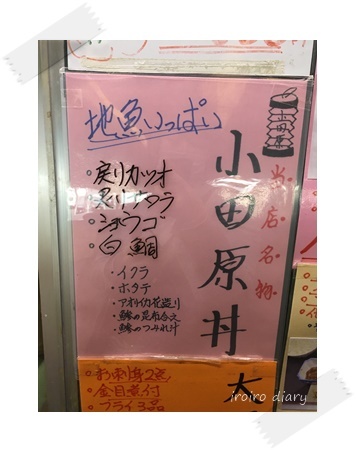 地魚いっぱい
小田原丼
当店名物
・戻りカツオ
・炙りサワラ
・ショウゴ
・白鯛
・イクラ
・ホタテ
・アオリイカ花造り
・鯵の昆布合え
・鯵のつみれ汁
・お刺身2点
・金目煮付
・フライ3品
iroiro diary